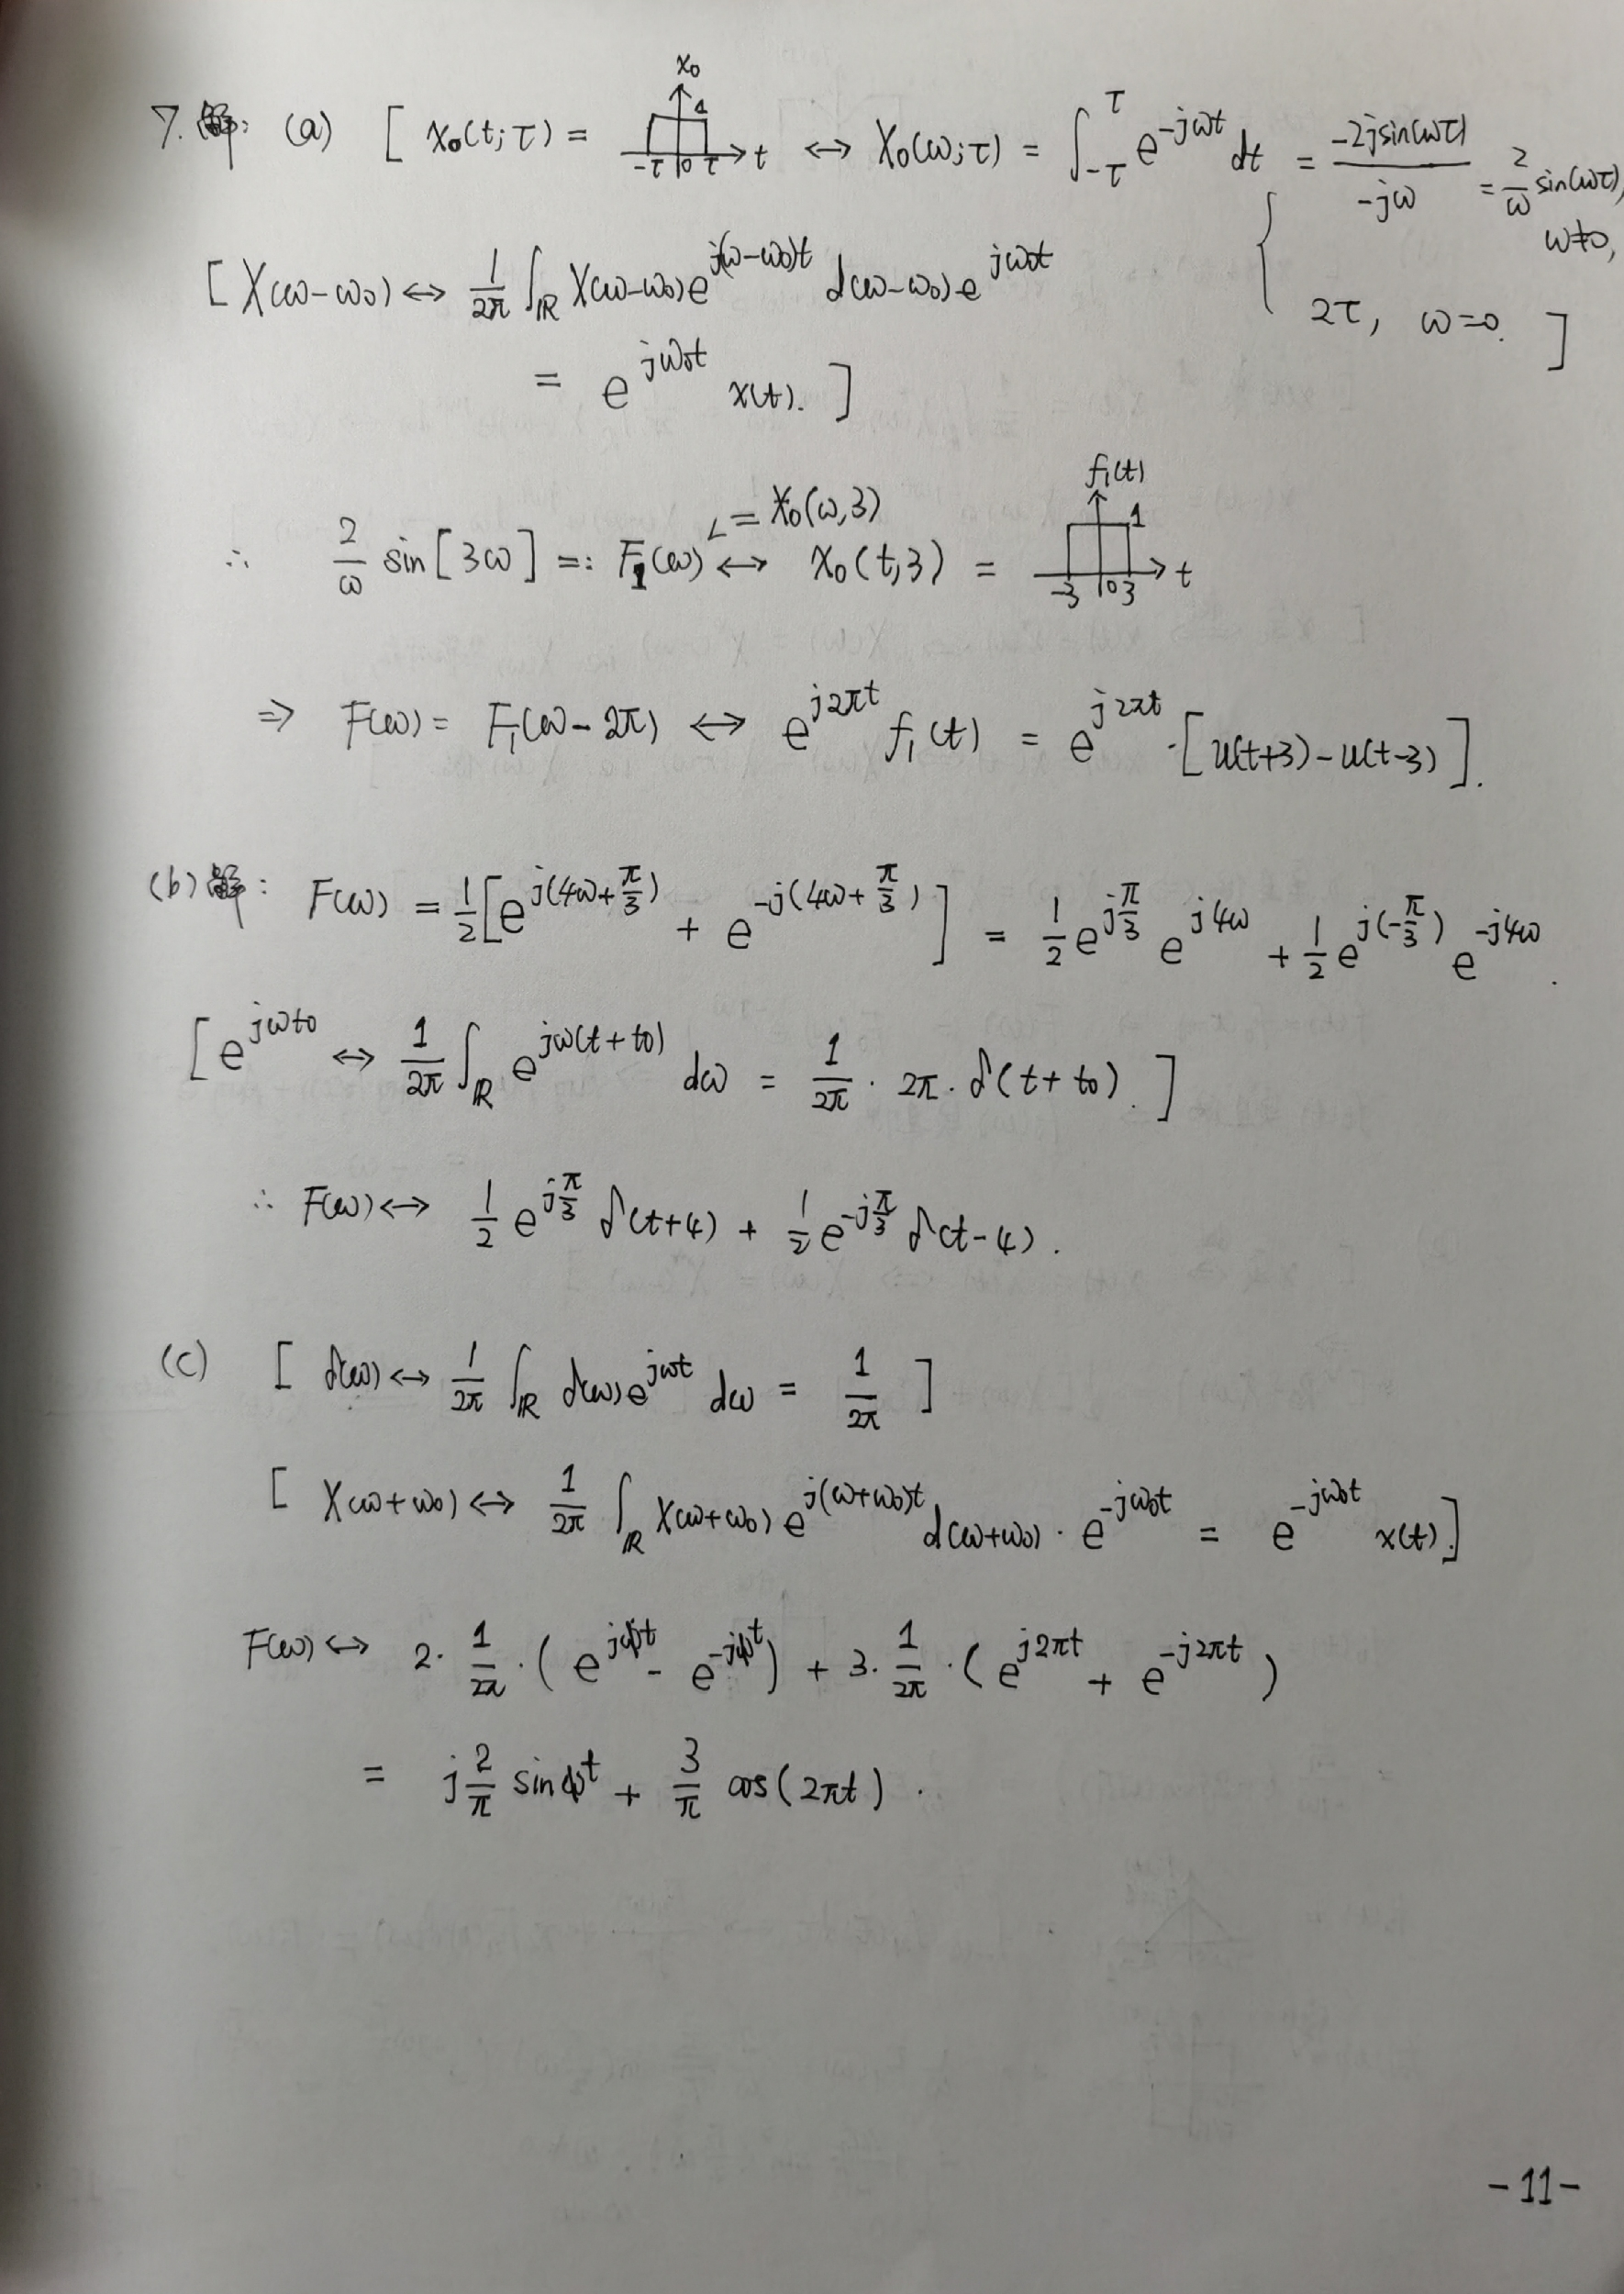 7. 解: (a) [ x₀(t;τ) = x₀ 1 -τ 0 τ t ↔ X₀(ω;τ) = ∫_{-τ}^{τ} e^{-jωt} dt = { -2jsin(ωτ) / -jω = 2/ω sin(ωτ), ω≠0,
2τ, ω=0. ]
[ X(ω-ω₀) ↔ 1/2π ∫_ℝ X(ω-ω₀) e^{j(ω-ω₀)t} d(ω-ω₀) e^{jω₀t}
= e^{jω₀t} x(t). ]
∴ 2/ω sin[3ω] =: F₁(ω) = X₀(ω,3) ↔ x₀(t,3) = f₁(t) 1 -3 0 3 t
⇒ F(ω) = F₁(ω-2π) ↔ e^{j2πt} f₁(t) = e^{j2πt} · [u(t+3) - u(t-3)].
(b) 解: F(ω) = 1/2 [e^{j(4ω+π/3)} + e^{-j(4ω+π/3)}] = 1/2 e^{jπ/3} e^{j4ω} + 1/2 e^{j(-π/3)} e^{-j4ω}.
[ e^{jωt₀} ↔ 1/2π ∫_ℝ e^{jω(t+t₀)} dω = 1/2π · 2π · δ(t+t₀). ]
∴ F(ω) ↔ 1/2 e^{jπ/3} δ(t+4) + 1/2 e^{-jπ/3} δ(t-4).
(c) [ δ(ω) ↔ 1/2π ∫_ℝ δ(ω) e^{jωt} dω = 1/2π ]
[ X(ω+ω₀) ↔ 1/2π ∫_ℝ X(ω+ω₀) e^{j(ω+ω₀)t} d(ω+ω₀) · e^{-jω₀t} = e^{-jω₀t} x(t) ]
F(ω) ↔ 2 · 1/2π · (e^{jt} - e^{-jt}) + 3 · 1/2π · (e^{j2πt} + e^{-j2πt})
= j 2/π sin t + 3/π cos(2πt).
-11-